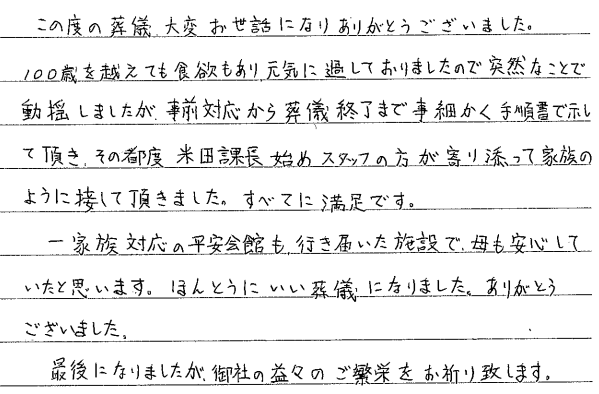 この度の葬儀、大変お世話になりありがとうございました。
100歳を越えても食欲もあり、元気に過しておりましたので突然なことで
動揺しましたが、事前対応から葬儀終了まで事細かく手順書で示し
て頂き、その都度米田課長始めスタッフの方が寄り添って家族の
ように接して頂きました。すべてに満足です。
一家族対応の平安会館も、行き届いた施設で、母も安心して
いたと思います。ほんとうにいい葬儀になりました。ありがとう
ございました。
最後になりましたが、御社の益々のご繁栄をお祈り致します。